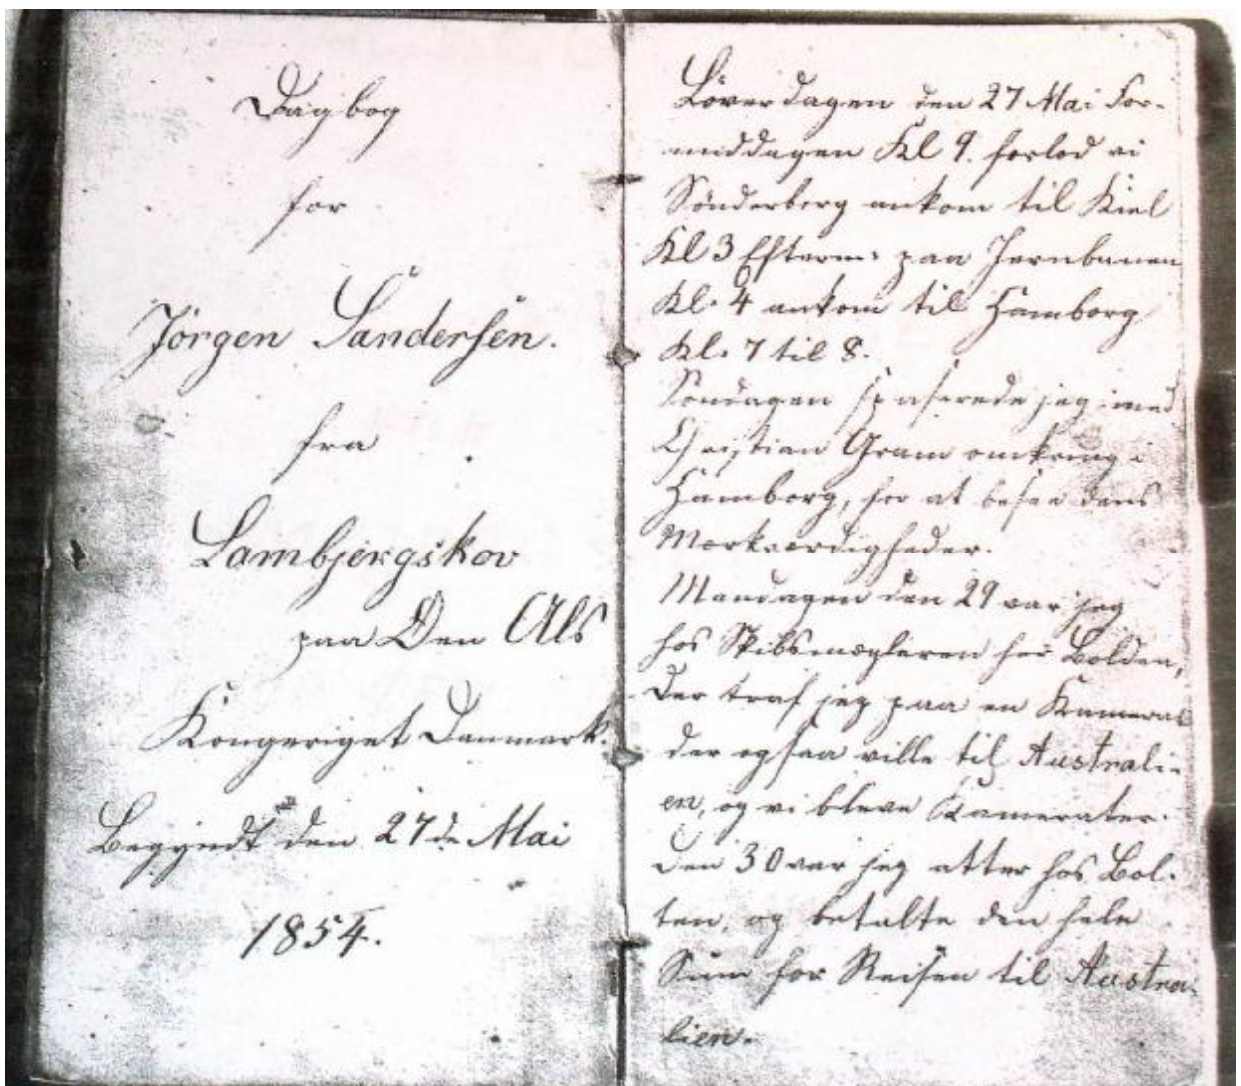 Dagbog
for
Jörgen Sandersen.
fra
Lambjergskov
paa Öen Als
Kongeriget Danmark.
Begyndt den 27de Mai
1854.
Löverdagen den 27 Mai For-
middagen Kl 9. forlod vi
Sönderborg ankom til Kiel
Kl 3 Efterm: paa Jernbanen
Kl. 4 ankom til Hamborg
Kl. 7 til 8.
Söndagen spaserede jeg med
Christian Gram omkring i
Hamborg, for at besee dens
Mærkværdigheder.
Mandagen den 29 var jeg
hos Skibsmægleren Bolden,
der traf jeg paa en Kamerat
der ogsaa ville til Australi-
en, og vi bleve Kamerater.
Den 30 var jeg atter hos Bol-
ten, og betalte den hele
Sum for Reisen til Austra-
lien.